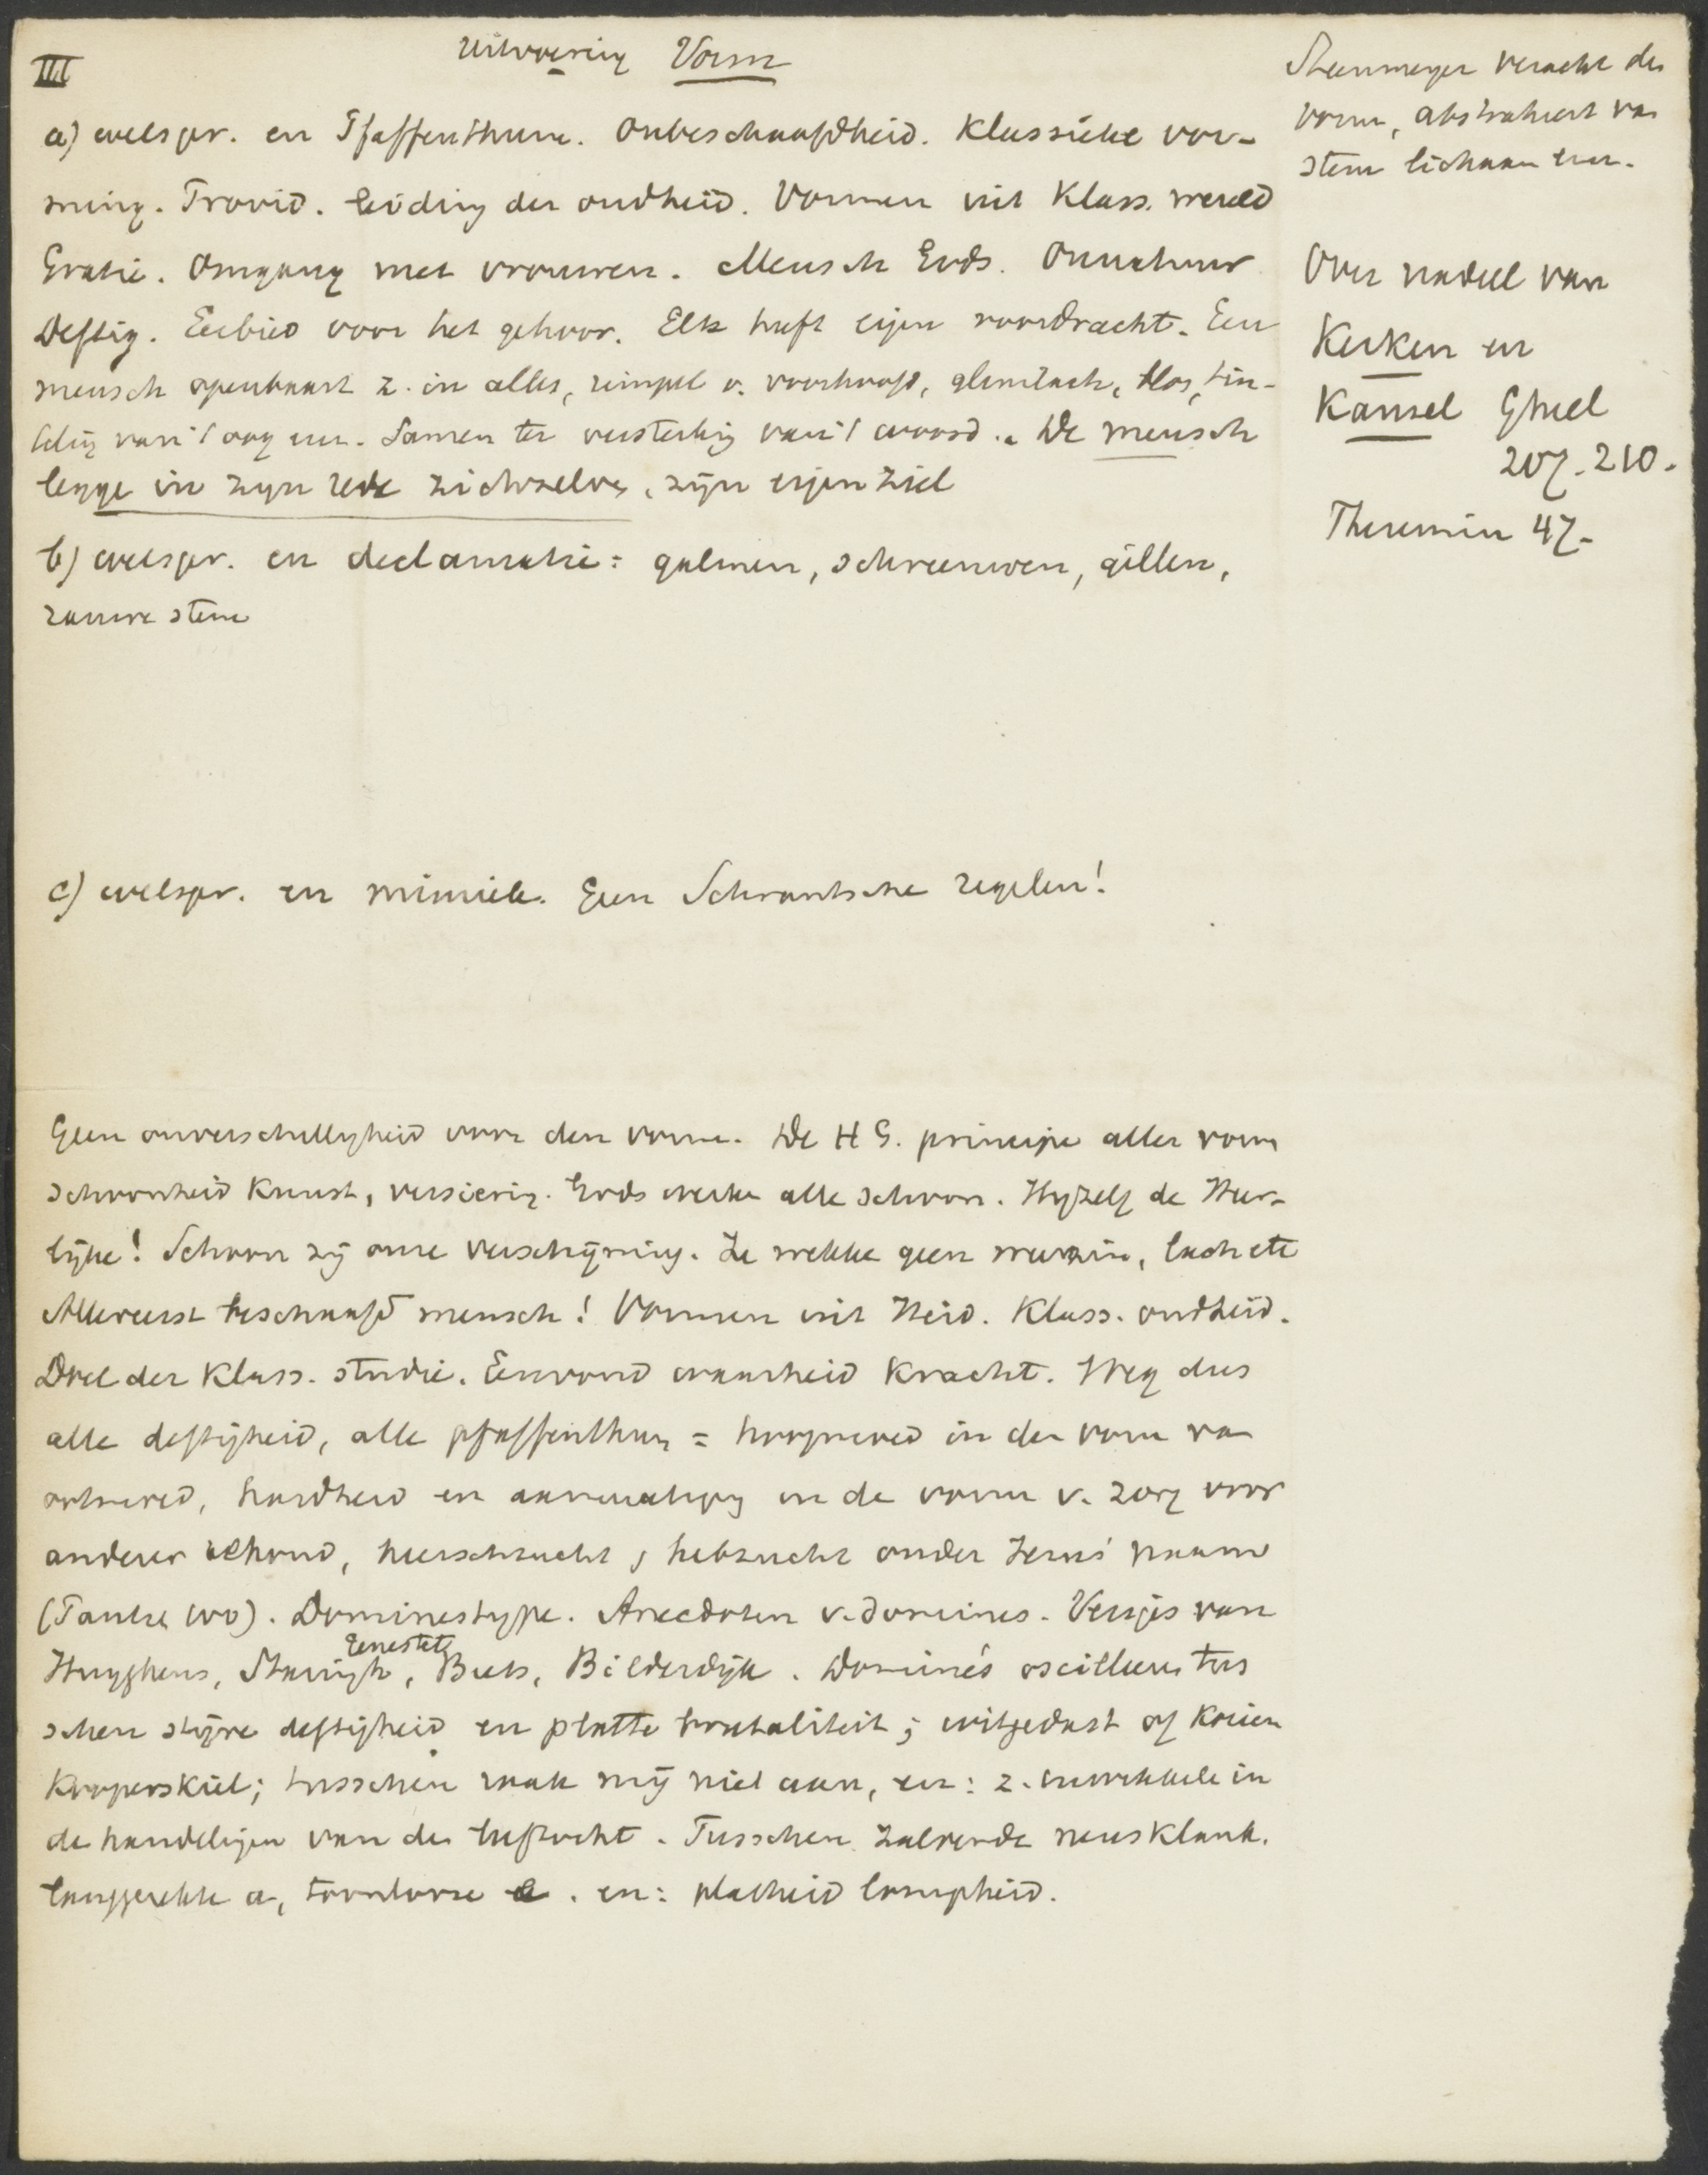 III
Uitvoering Vorm
a) welspr. en Pfaffenthum. Onbeschaafdheid. Klassieke vor-
ming. Provid. leiding der oudheid. Vormen uit Klass. wereld
Gratie. Omgang met vrouwen. Mensch Gods. Onnatuur
Deftig. Eerbied voor het gehoor. Elk heeft eigen voordracht. Een
mensch openbaart z. in alles, rimpel v. voorhoofd, glimlach, blos, tin-
teling van 't oog enz. Samen ter versterking van 't woord. De mensch
legge in zijn rede zichzelve, zijn eigen ziel
b) welspr. en declamatie = galmen, schreeuwen, gillen,
rauwe stem
c) welspr. en mimiek. Geen Schrantsche regelen!
Geen onverschilligheid voor den vorm. De H G. principe aller vorm
schoonheid Kunst, versiering. Gods werken alle schoon. Hijzelf de Heer-
lijke! Schoon zij onze verschijning. Ze wekke geen weerzin, lach etc
Allereerst beschaafd mensch! Vormen uit Heid. Klass. oudheid.
Doel der Klass. studie. Eenvoud waarheid Kracht. Weg dus
alle deftigheid, alle pfaffenthum = hoogmoed in den vorm van
ootmoed, hardheid en aanmatiging in de vorm v. zorg voor
anderer behoud, heerschzucht, hebzucht onder Jezus' naam
(Tantae). Dominestype. Anecdoten v. domines. Versjes van
Huyghens, Staringh, Genestet, Beets, Bilderdijk. Dominé's oscilleeren tus
schen stijve deftigheid en platte brutaliteit; witgedast of
tusschen raak mij niet aan, en: z. inwikkele in
de handelingen van de. Tusschen zalvende neusklank.
langgerekte a, toonlooze e. en: platheid lompheid.
Steenmeyer veracht den
vorm, abstraheert van
stem lichaam enz.
Over nadeel van
Kerken en
Kansel Gheel
207-210.
Theremin 47-